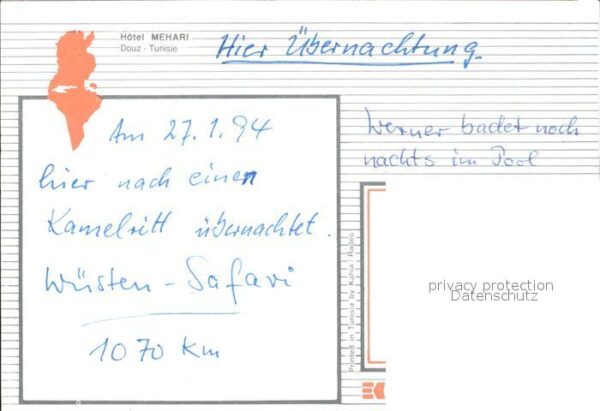 Hôtel MEHARI
Douz - Tunisie
Hier Übernachtung
Am 27.1.94
hier nach einen
Kamelritt übernachtet.
Wüsten - Safari
1070 km
Werner badet noch
nachts im Pool
Printed in Tunisia by Kahia - Rades
privacy protection
Datenschutz